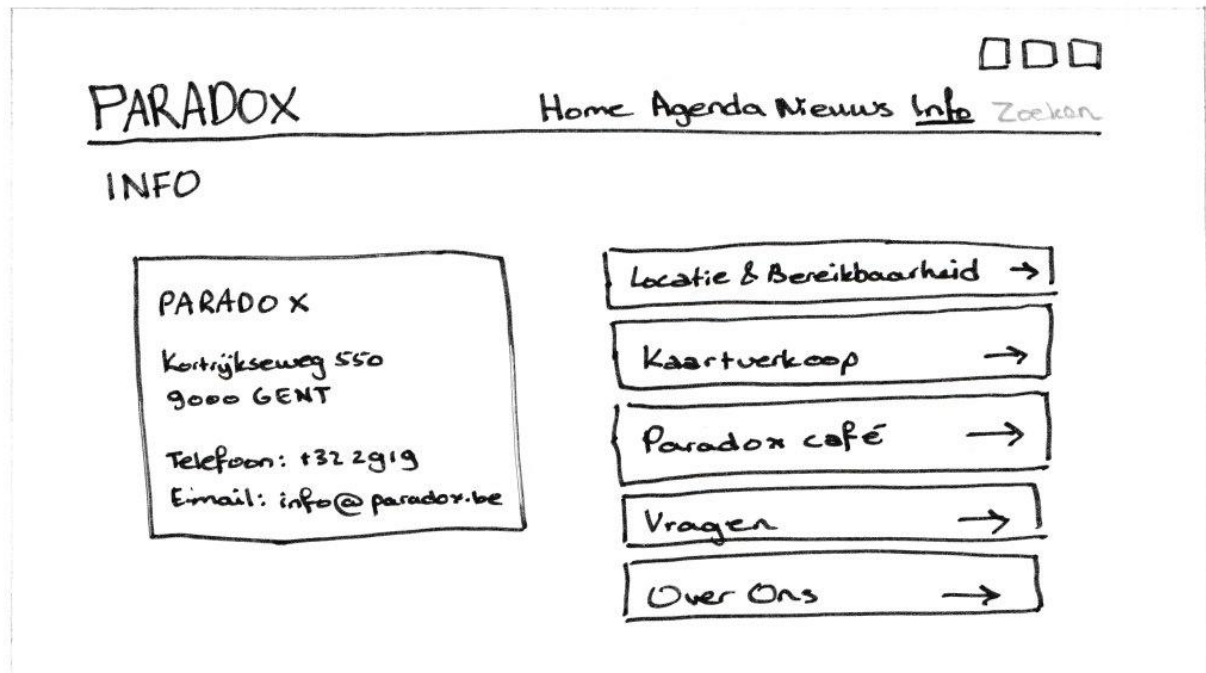 PARADOX
Home Agenda Nieuws Info Zoeken
INFO
PARADOX
Kortrijkseweg 550
9000 GENT
Telefoon: +32 2919
E-mail: info@paradox.be
Locatie & Bereikbaarheid →
Kaartverkoop →
Paradox café →
Vragen →
Over Ons →